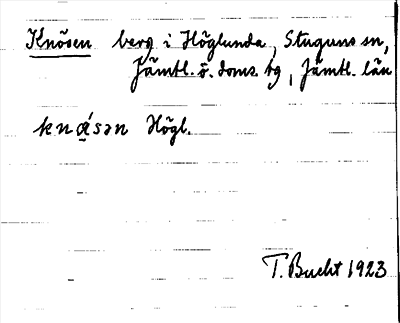 Knösen berg i Höglunda, Stuguns sn,
Jämtl. ö. doms. tg, Jämtl. län
Högl.
T. Bucht 1923